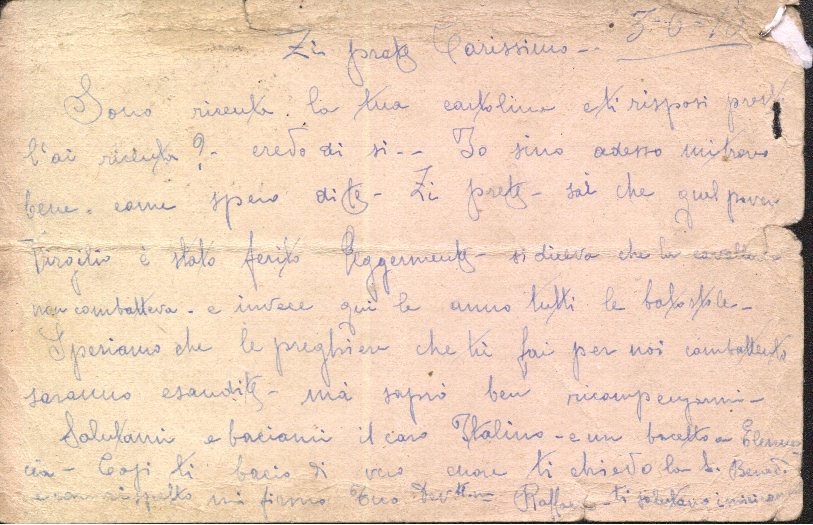 Zi prete Carissimo -
Sono ricevuta la tua cartolina e ti risposi
l'ai ricevuta? - credo di si -- Io sino adesso mi trovo
bene - come spero di te - Zi prete - sai che quel pover
Virgilio è stato ferito leggermente - si diceva che la
non combatteva - e invece qui le anno tutti le
Speriamo che le preghiere che tu fai per noi combattenti
saranno esaudite - ma saprò ben ricompenzarmi -
Salutami e baciami il caro Italino - e un bacetto a
Cosi ti bacio di vero cuore ti chiedo la S. Bened
e con rispetto mi firmo tuo Dev Raffaele - ti salutano i miei